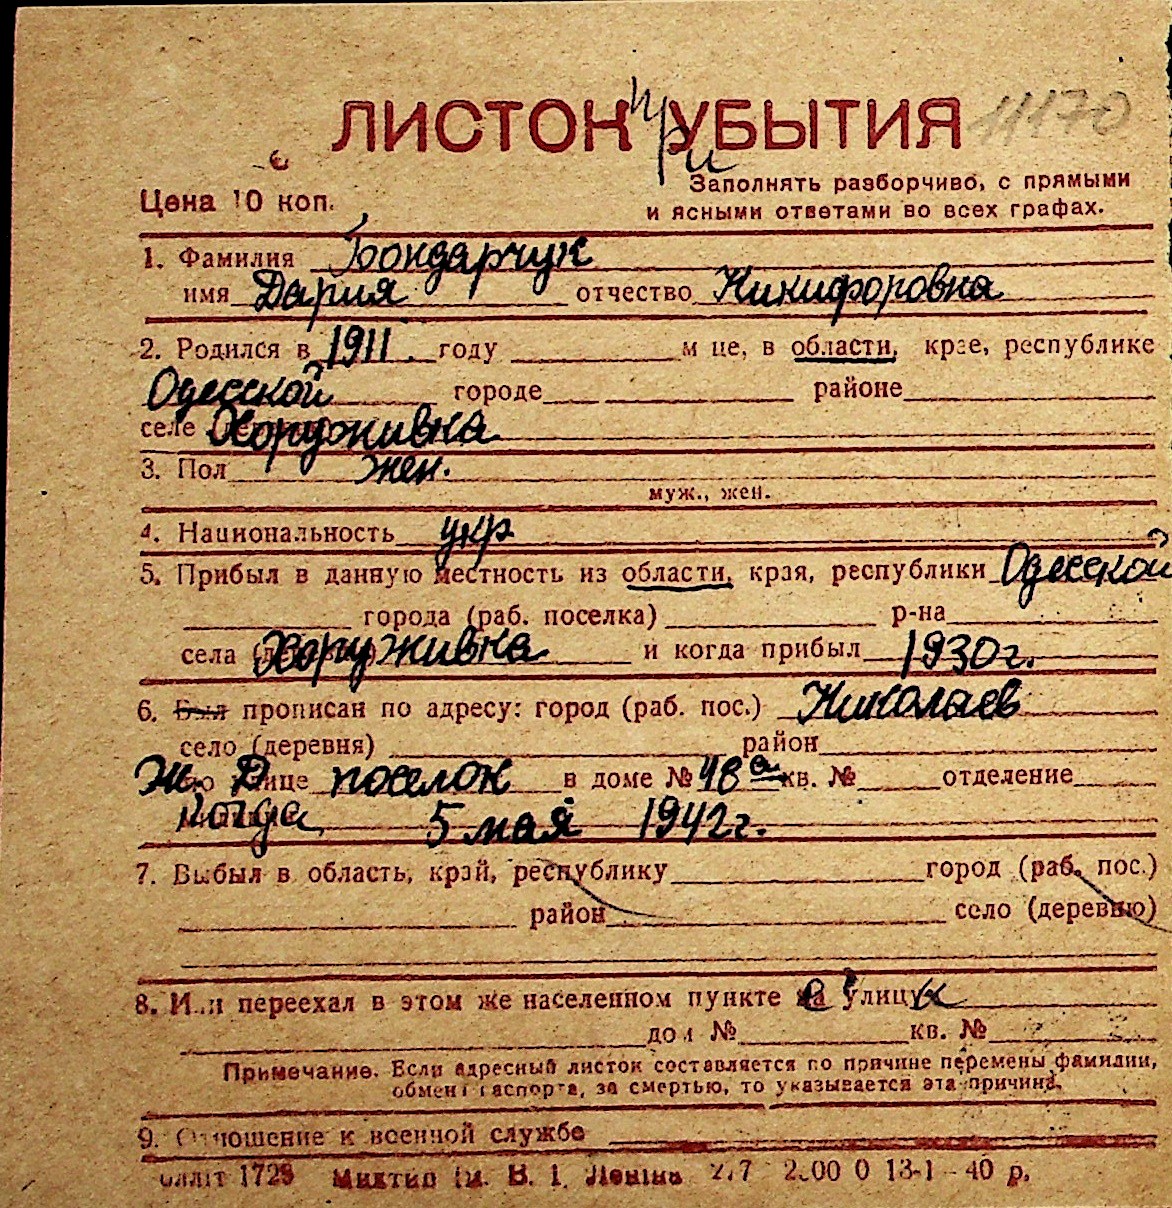 ЛИСТОК при УБЫТИЯ 11170
Цена 10 коп.
Заполнять разборчиво, с прямыми
и ясными ответами во всех графах.
1. Фамилия Бондарчук
имя Дария отчество Никифоровна
2. Родился в 1911. году м-це, в области, крае, республике
Одесской городе районе
селе Хоруживка
3. Пол жен.
муж., жен.
4. Национальность укр
5. Прибыл в данную местность из области, края, республики Одесской
города (раб. поселка) р-на
села Хоруживка и когда прибыл 1930 г.
6. Был прописан по адресу: город (раб. пос.) Николаев
село (деревня) район
Ж. Д. поселок в доме № 48а кв. № отделение
Когда 5 мая 1942 г.
7. Выбыл в область, край, республику город (раб. пос.)
район село (деревню)
8. Или переехал в этом же населенном пункте с улицы
дом № кв. №
Примечание. Если адресный листок составляется по причине перемены фамилии,
обмена паспорта, за смертью, то указывается эта причина.
9. Отношение к военной службе
1728 Миктип ім. В. І. Леніна 13-1-40 р.